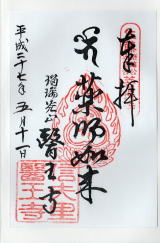 奉拝
薬師如来
瑠璃光山
醫王寺
平成二十七年五月十一日
醫王寺